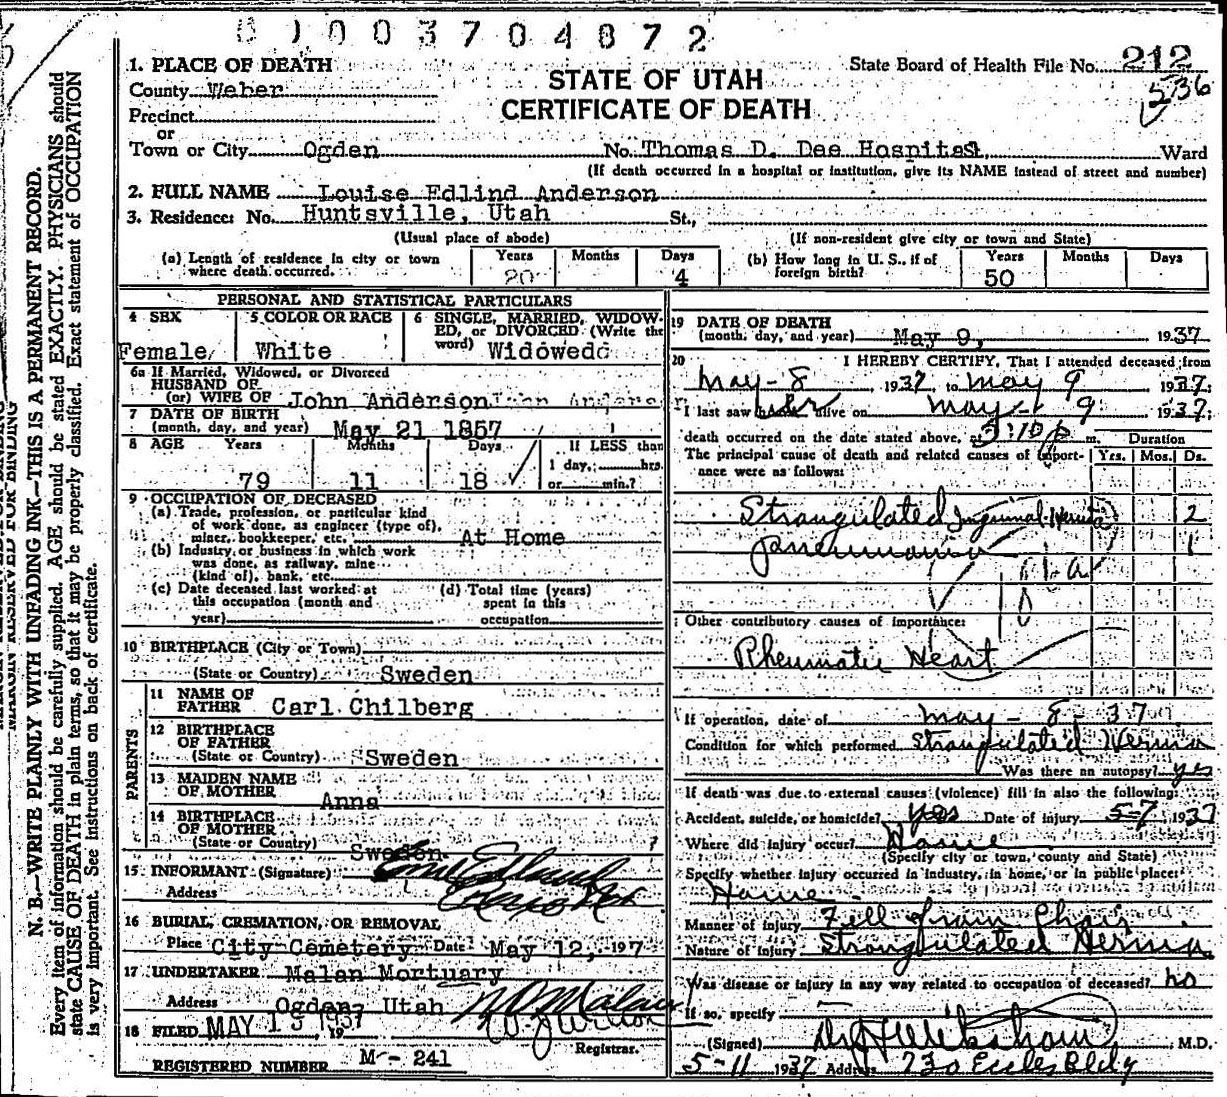 003704872
1. PLACE OF DEATH
County Weber
Precinct
or
Town or City Ogden
STATE OF UTAH
CERTIFICATE OF DEATH
State Board of Health File No. 212
536
No. Thomas D. Dee Hospital, Ward
(If death occurred in a hospital or institution, give its NAME instead of street and number)
2. FULL NAME Louise Edlind Anderson
3. Residence: No. Huntsville, Utah St.,
(Usual place of abode)
(If non-resident give city or town and State)
(a) Length of residence in city or town where death occurred. Years 20 Months Days 4
(b) How long in U. S., if of foreign birth? Years 50 Months Days
PERSONAL AND STATISTICAL PARTICULARS
4 SEX
Female
5 COLOR OR RACE
White
6 SINGLE, MARRIED, WIDOWED, or DIVORCED (Write the word)
Widowed
6a If Married, Widowed, or Divorced
HUSBAND OF
(or) WIFE OF John Anderson
7 DATE OF BIRTH
(month, day, and year) May 21 1857
8 AGE Years Months Days If LESS than
79 11 18 1 day, hrs.
or min.?
9 OCCUPATION OF DECEASED
(a) Trade, profession, or particular kind
of work done, as engineer (type of),
miner, bookkeeper, etc. At Home
(b) Industry or business in which work
was done, as railway, mine
(kind of), bank, etc.
(c) Date deceased last worked at
this occupation (month and
year)
(d) Total time (years)
spent in this
occupation
10 BIRTHPLACE (City or Town)
(State or Country) Sweden
PARENTS
11 NAME OF
FATHER Carl Chilberg
12 BIRTHPLACE
OF FATHER
(State or Country) Sweden
13 MAIDEN NAME
OF MOTHER Anna
14 BIRTHPLACE
OF MOTHER
(State or Country) Sweden ?
15 INFORMANT (Signature)
Address
16 BURIAL, CREMATION, OR REMOVAL
Place City Cemetery Date May 12, 197
17 UNDERTAKER Malan Mortuary
Address Ogden, Utah
18 FILED MAY 13 1937, 19
Registrar.
REGISTERED NUMBER M - 241
19 DATE OF DEATH
(month, day, and year) May 9, 1937
20 I HEREBY CERTIFY, That I attended deceased from
May - 8, 1937, to May 9 1937
I last saw her alive on May 9 1937
death occurred on the date stated above, at 5:10 p m.
Duration
The principal cause of death and related causes of importance were as follows:
Yrs. Mos. Ds.
Strangulated Inguinal Hernia 2
Pneumonia 1
Other contributory causes of importance:
Rheumatic Heart
If operation, date of May - 8 - 37
Condition for which performed Strangulated Hernia
Was there an autopsy? yes
If death was due to external causes (violence) fill in also the following:
Accident, suicide, or homicide? yes Date of injury 5-7, 1937
Where did injury occur? Home
(Specify city or town, county and State)
Specify whether injury occurred in industry, in home, or in public place:
Home
Manner of injury Fell from Chair
Nature of injury Strangulated Hernia
Was disease or injury in any way related to occupation of deceased? no
If so, specify
(Signed) M.D.
5-11 1937 Address 730 Eccles Bldg
MARGIN RESERVED FOR BINDING
N. B.—WRITE PLAINLY WITH UNFADING INK—THIS IS A PERMANENT RECORD.
Every item of information should be carefully supplied. AGE should be stated EXACTLY. PHYSICIANS should
state CAUSE OF DEATH in plain terms, so that it may be properly classified. Exact statement of OCCUPATION
is very important. See instructions on back of certificate.